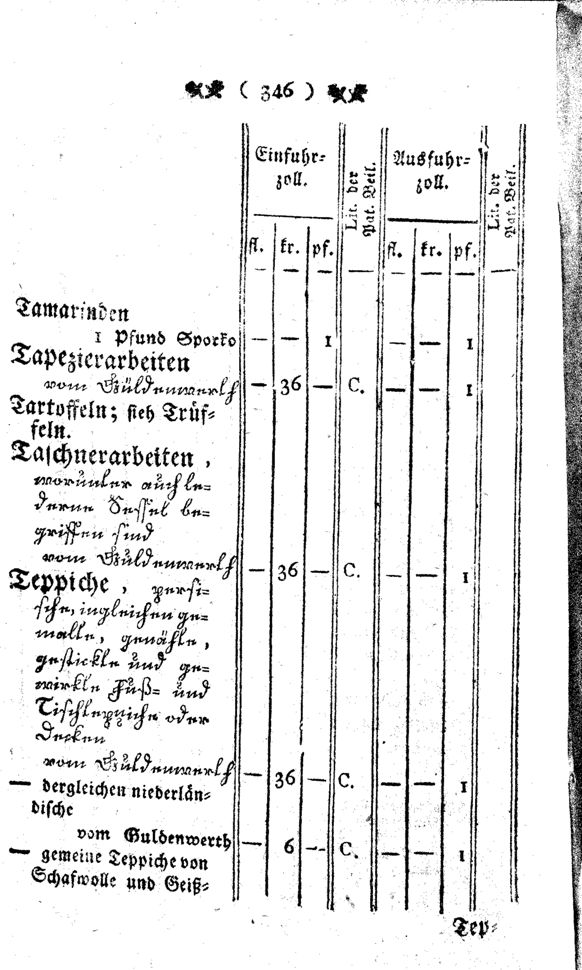 ( 346 )
Einfuhr- zoll. | Lit. der Pat. Beil. | Ausfuhr- zoll. | Lit. der Pat. Beil.
fl. | kr. | pf. | fl. | kr. | pf.
— | — | — | — | — | — | — | —
Tamarinden
1 Pfund Sporko — | — | 1 | — | — | 1
Tapezierarbeiten
vom Guldenwerth — | 36 | — | C. | — | — | 1
Tartoffeln; sieh Trüf-
feln.
Taschnerarbeiten,
worunter auch le-
derne Sessel be-
griffen sind
vom Guldenwerth — | 36 | — | C. | — | — | 1
Teppiche, persi-
sche, ingleichen ge-
malte, genähte,
gestickte und ge-
wirkte Fuß- und
Tischteppiche oder
Decken
vom Guldenwerth — | 36 | — | C. | — | — | 1
— dergleichen niederlän-
dische
vom Guldenwerth — | 6 | — | C. | — | — | 1
— gemeine Teppiche von
Schafwolle und Geiß-
Tep-